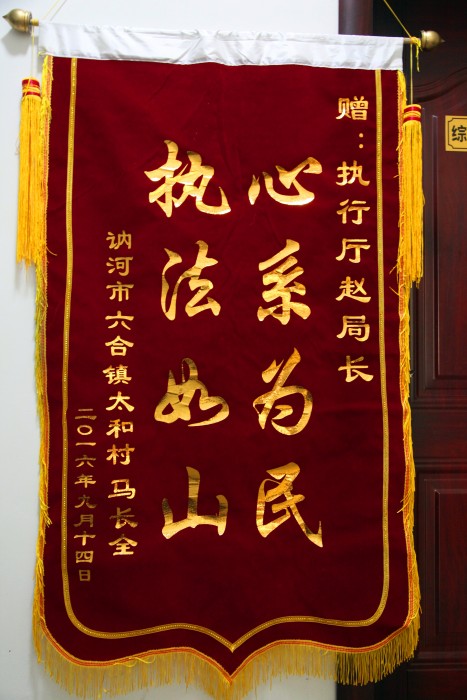 赠：执行厅赵局长
心系为民
执法如山
讷河市六合镇太和村马长全
二〇一六年九月十四日
综